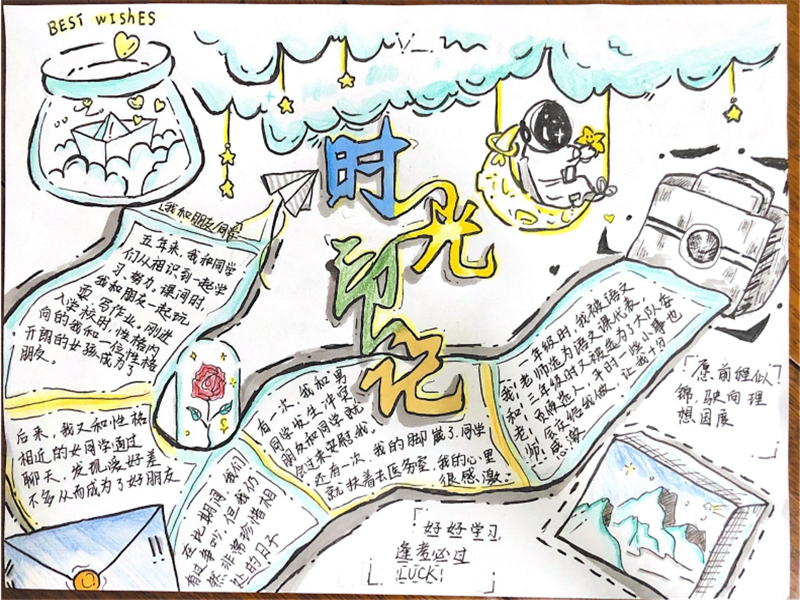 BEST WISHES
时光印记
「我和朋友/同学
五年来,我和同学
们从相识到一起学
习、努力,课间时
我和朋友一起玩
耍、写作业。刚进
入学校时,性格内
向的我和一位性格
开朗的女孩成为了
朋友。
后来,我又和性格
相近的女同学通过
聊天,发现
不多从而成为了好朋友
在此期间,我们
有过争吵,但我仍
然非常珍惜相
处的日子
有一次,我和男
同学发生冲突,
朋友和同学就
会过来安慰我。
还有一次,我的脚崴了,同学
就扶着去医务室,我的心里
很感激。
二年级时,我被语文
老师选为语文课代表,
三年级时又被选为大队委
候选人,平时一些小事也
会交给我做,
让我十分
感激
我
和
老
师
「愿前程似
锦,驶向理
想因展
「好好学习
逢考必过
LUCK」